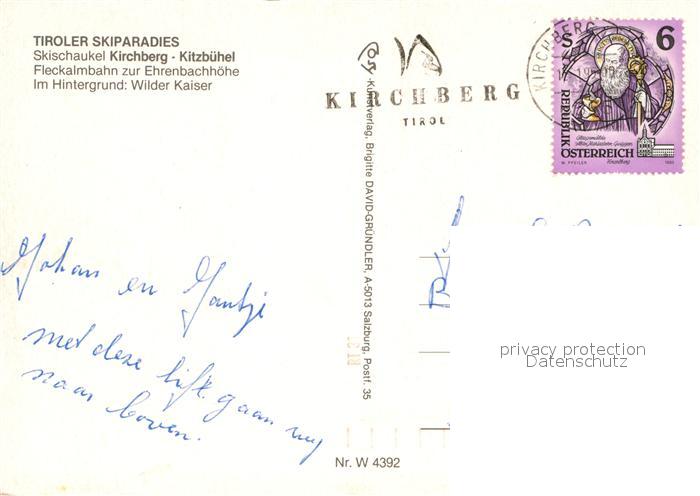 TIROLER SKIPARADIES
Skischaukel Kirchberg - Kitzbühel
Fleckalmbahn zur Ehrenbachhöhe
Im Hintergrund: Wilder Kaiser
KIRCHBERG
TIROL
KIRCHBERG
S 6
REPUBLIK
ÖSTERREICH
W. PFEILER 1993
-Kunstverlag, Brigitte DAVID-GRÜNDLER, A-5013 Salzburg, Postf. 35
Johan en Jantje
met deze lift gaan wij
naar boven.
privacy protection
Datenschutz
Nr. W 4392